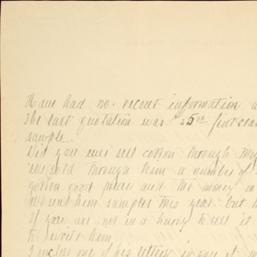 have had no recent information
The last quotation was $25.00 first class
sample.
Did you ever sell cotton through
through them a number of
gotten good prices and the money in
sent them samples this year but
if you are not in a hurry to sell it
to write them.
I inclose one of his letters